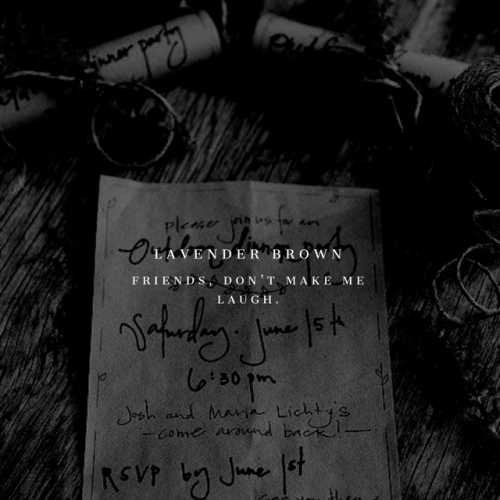 dinner party
please join us for an
Outdoor dinner party
LAVENDER BROWN
FRIENDS, DON'T MAKE ME
LAUGH.
Saturday. June 15th
6:30 pm
Josh and Maria Lichty's
-come around back!-
RSVP by June 1st